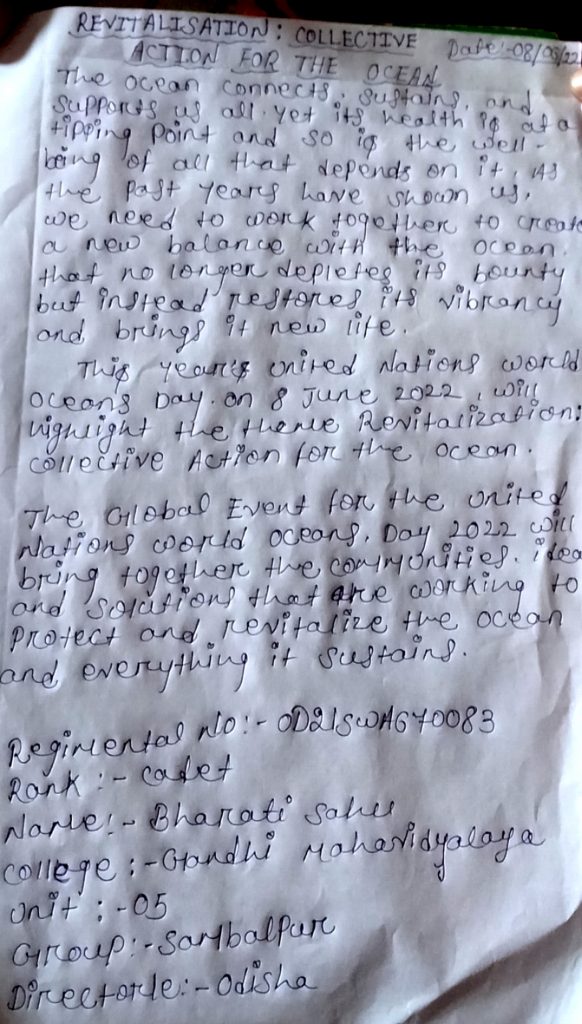 REVITALISATION: COLLECTIVE Date:-08/06/22
ACTION FOR THE OCEAN
The ocean connects, sustains, and
supports us all. yet its health is at a
tipping point and so is the well-
being of all that depends on it. As
the past years have shown us,
we need to work together to create
a new balance with the ocean.
that no longer depletes its bounty
but instead restores its vibrancy
and brings it new life.
This year's united Nations world
oceans Day. on 8 June 2022, will
highlight the theme Revitalization:
collective Action for the ocean.
The Global Event for the united
Nations world oceans, Day 2022 will
bring together the communities. idea
and solutions that are working to
protect and revitalize the ocean
and everything it sustains.
Regimental No:- OD21SWA670083
Rank :- cadet
Name:- Bharati Sahu
college :- Gandhi Mahavidyalaya
Unit :- 05
Group:- Sambalpur
Directorle:- Odisha